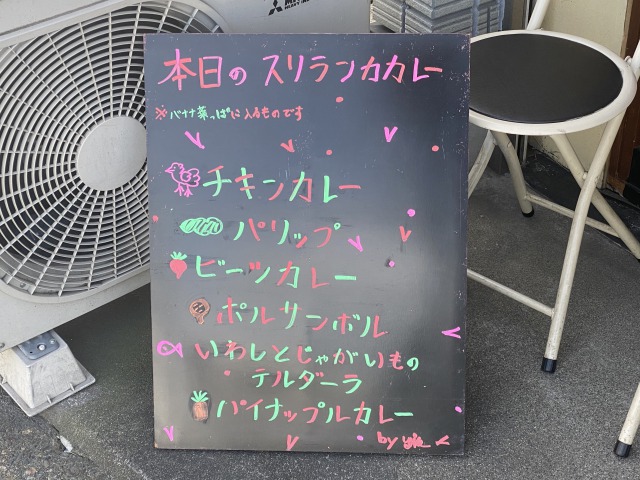 MITSUBISHI
本日の スリランカカレー
※バナナ葉っぱに入るものです
チキンカレー
パリップ
ビーツカレー
ポルサンボル
いわしとじゃがいもの
テルダーラ
パイナップルカレー
by